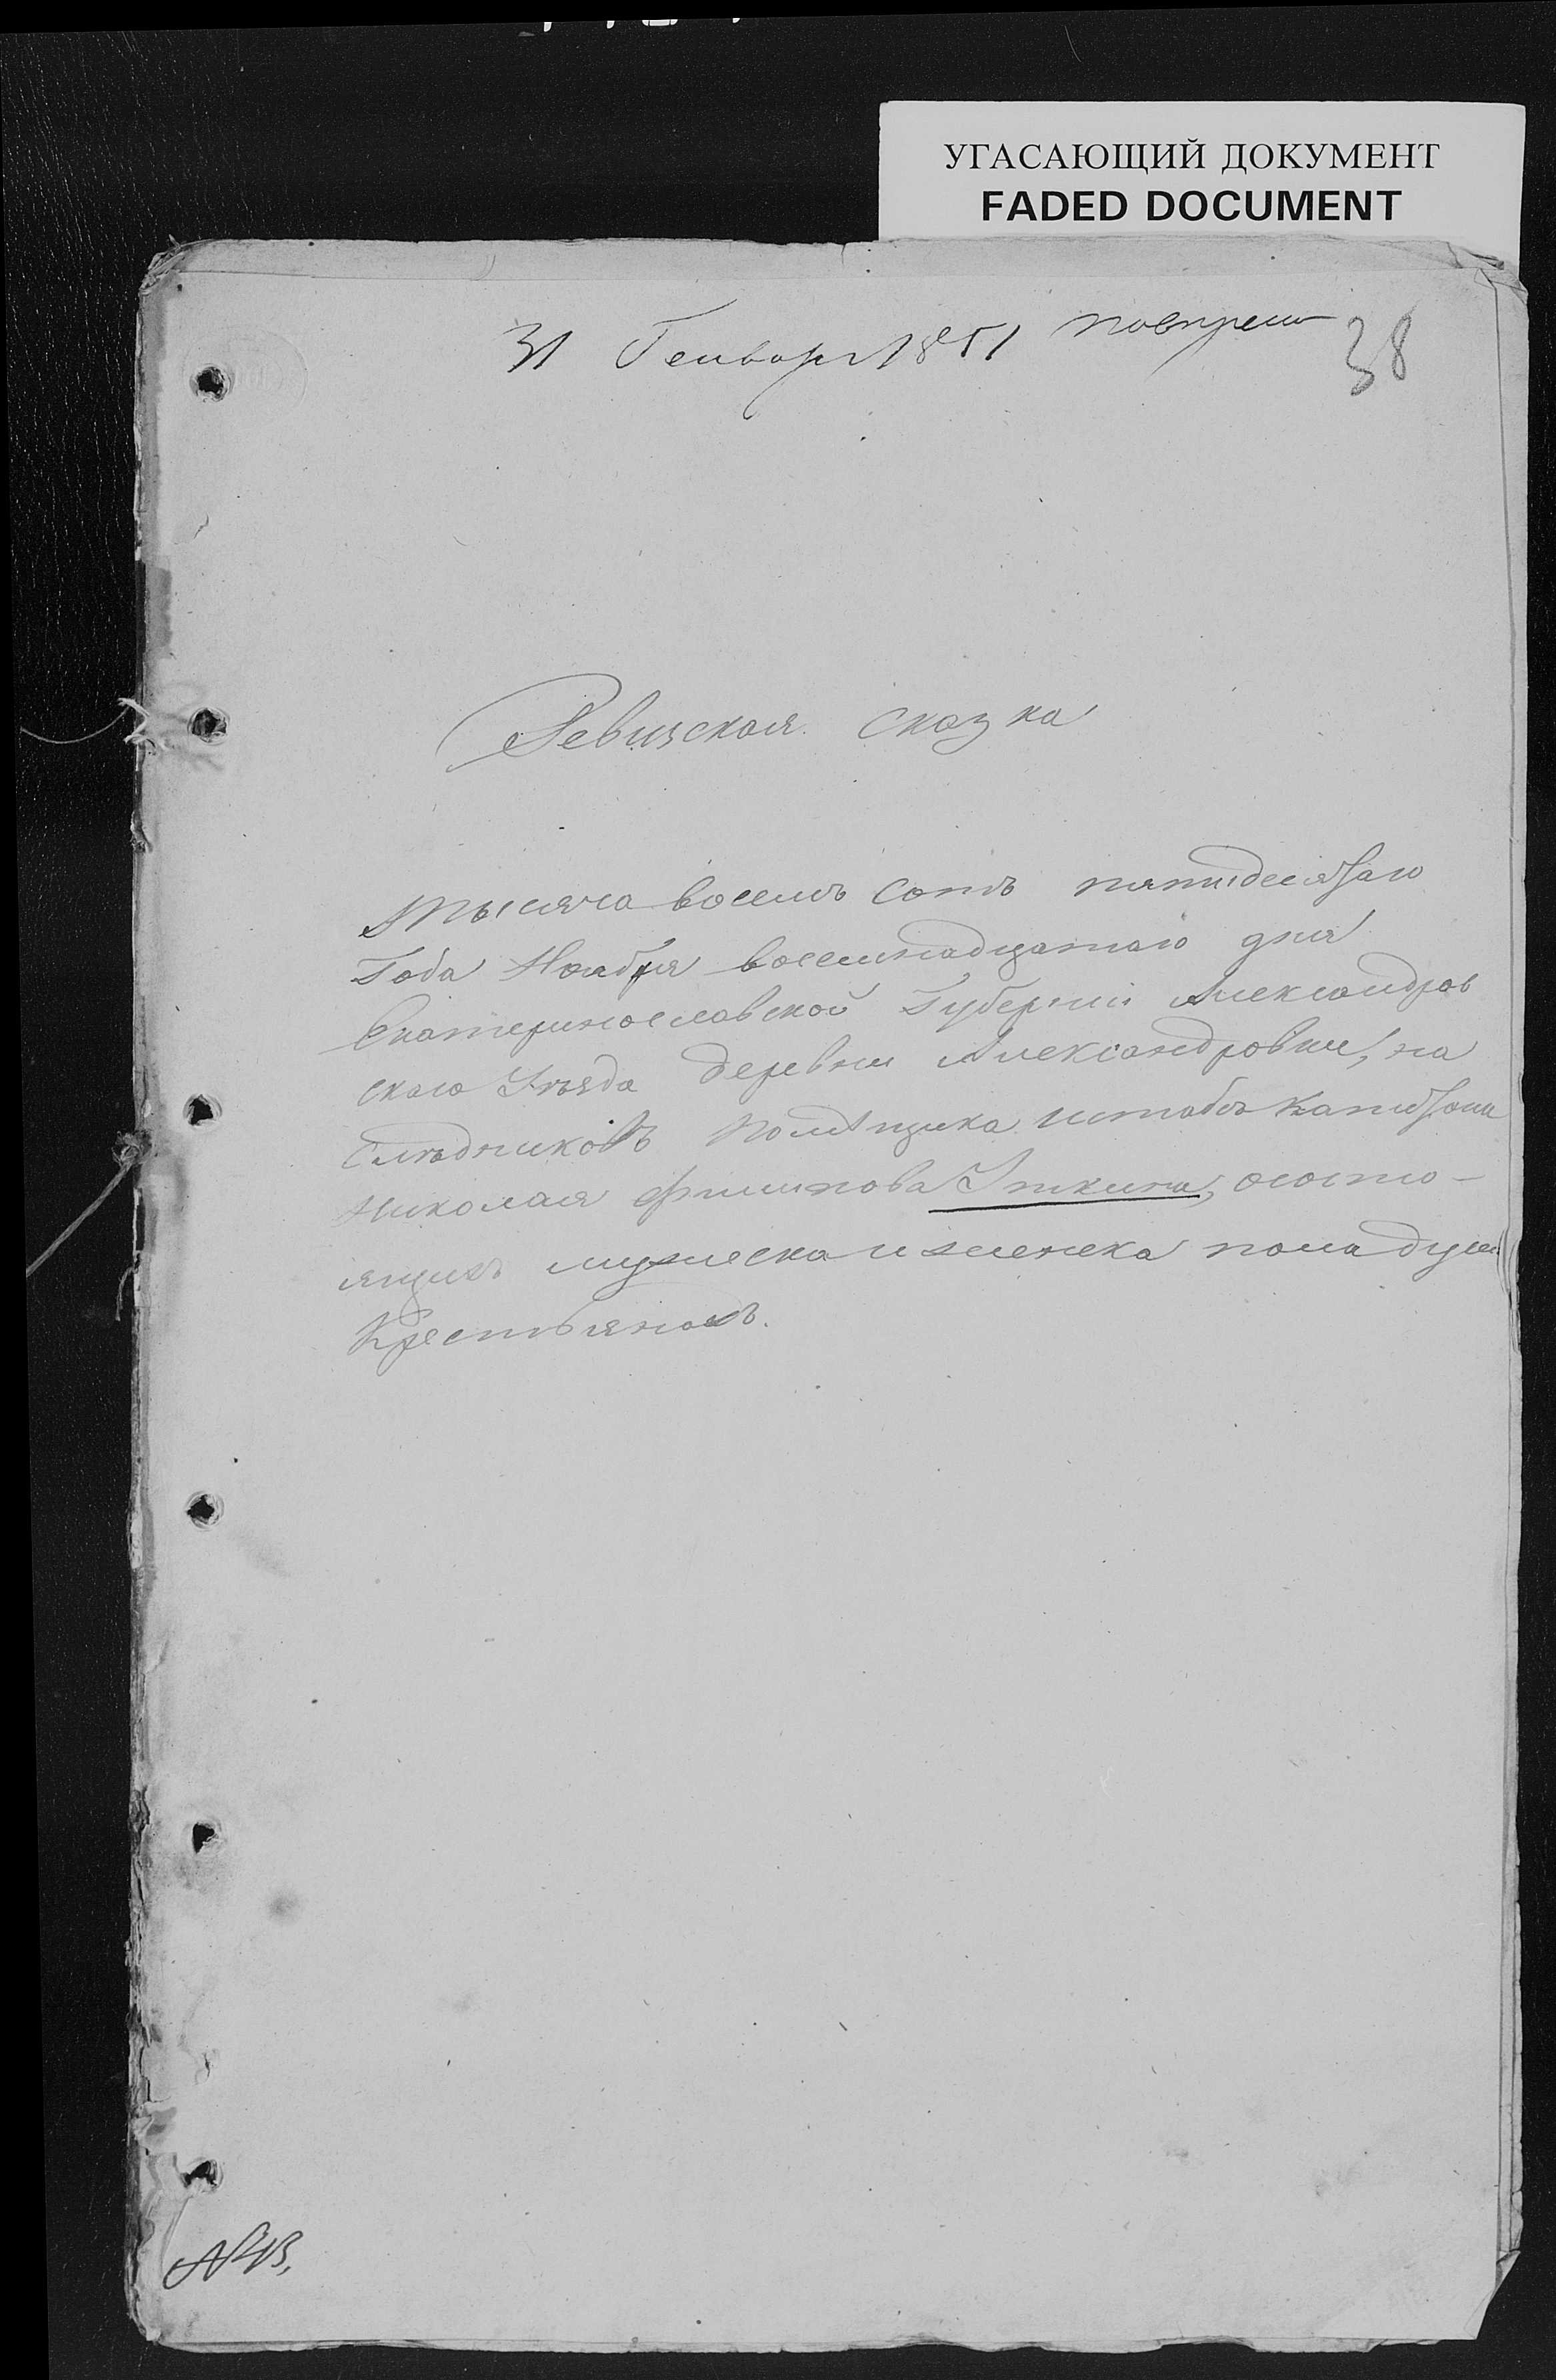 УГАСАЮЩИЙ ДОКУМЕНТ
FADED DOCUMENT
31 Генваря 1851
38
Ревизская сказка
Тысяча восемь сотъ пятидесятаго
Года Ноября восемнадцатаго дня
Екатеринославской Губернии Александров
скаго Уѣзда деревни Александровки, на
слѣдниковъ помѣщика штабсъ капитана
Николая Филипова Уткина, ососто-
ящихъ мужеска и женска пола душ
Крестьянахъ.
№43.